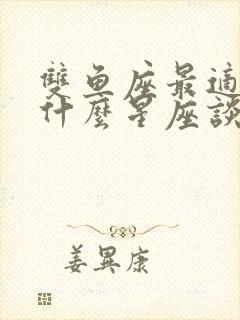 雙魚座最適
什麼星座談
姜異康